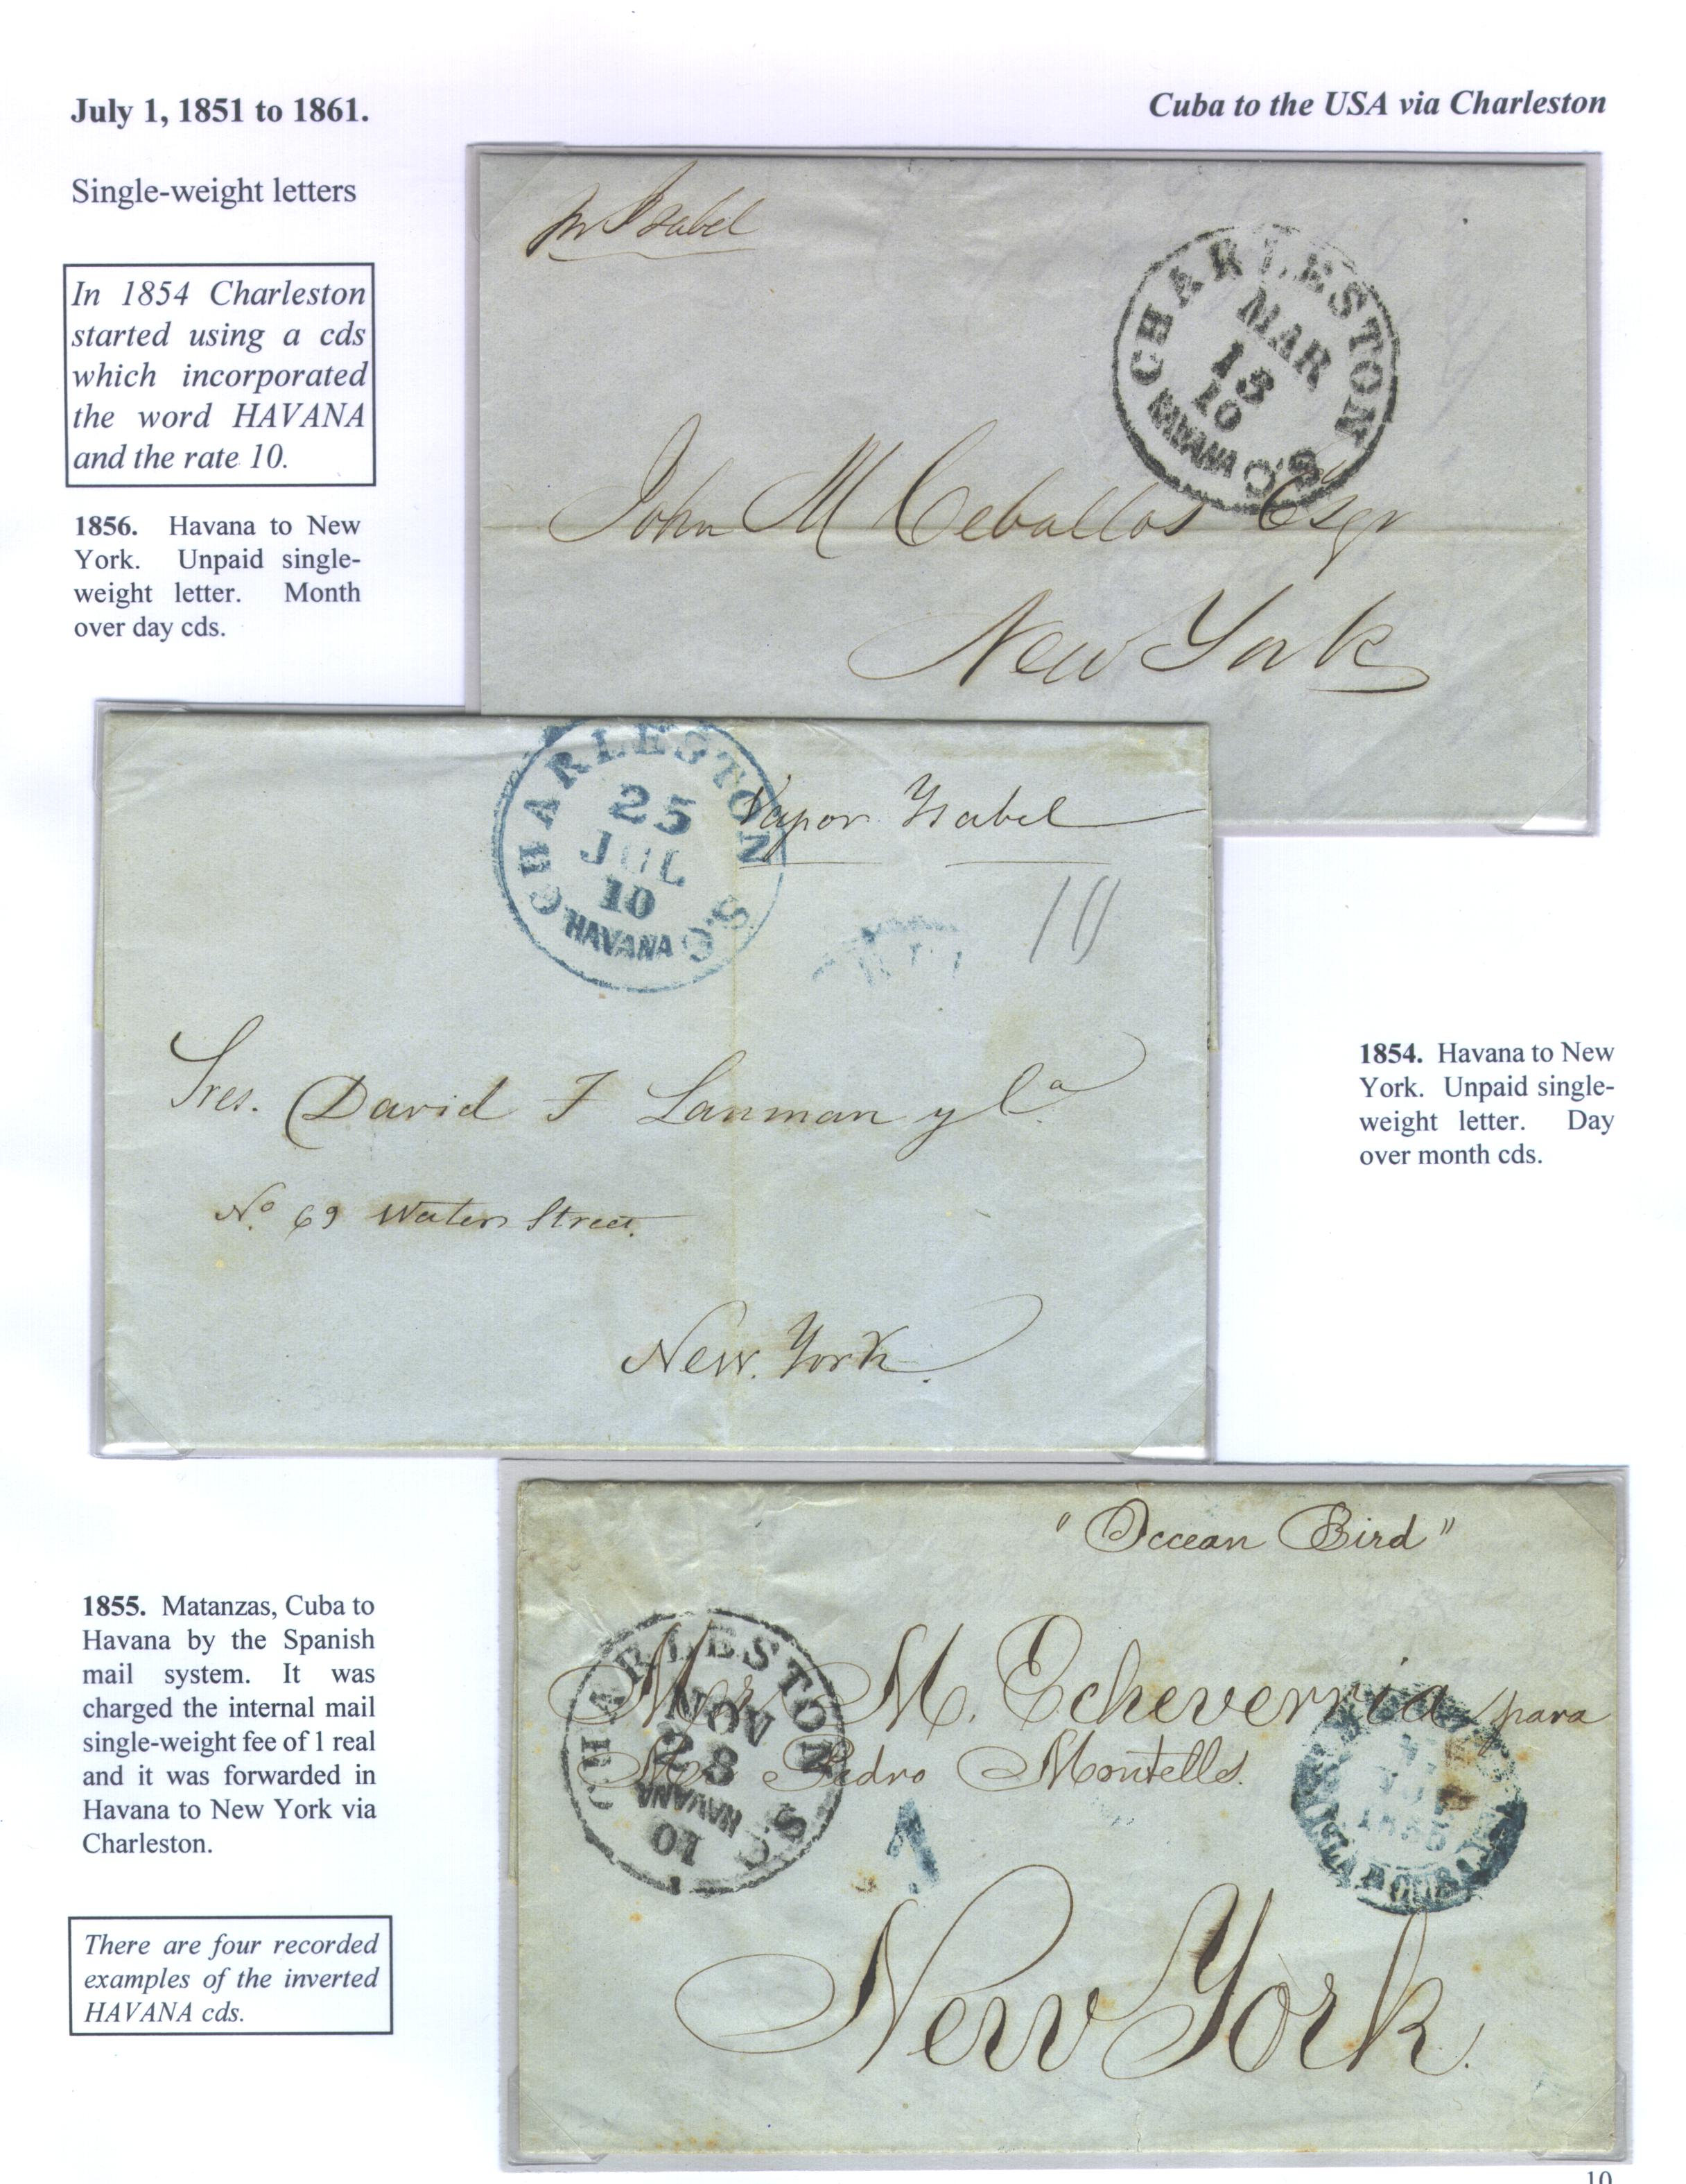 July 1, 1851 to 1861.
Cuba to the USA via Charleston
Single-weight letters
In 1854 Charleston
started using a cds
which incorporated
the word HAVANA
and the rate 10.
1856. Havana to New
York. Unpaid single-
weight letter. Month
over day cds.
pr Isabel
CHARLESTON S.C.
MAR
13
10
HAVANA
John M Ceballos Esqr
New York
CHARLESTON S.C.
25
JUL
10
HAVANA
Vapor Ysabel
10
Sres. David F Lanman y Ca.
No. 69 Water Street.
New. York.
1854. Havana to New
York. Unpaid single-
weight letter. Day
over month cds.
1855. Matanzas, Cuba to
Havana by the Spanish
mail system. It was
charged the internal mail
single-weight fee of 1 real
and it was forwarded in
Havana to New York via
Charleston.
There are four recorded
examples of the inverted
HAVANA cds.
"Occean Bird"
CHARLESTON S.C.
NOV
28
HAVANA
10
M. Echeverria para
Pedro Montells.
1
1855
New York.
10